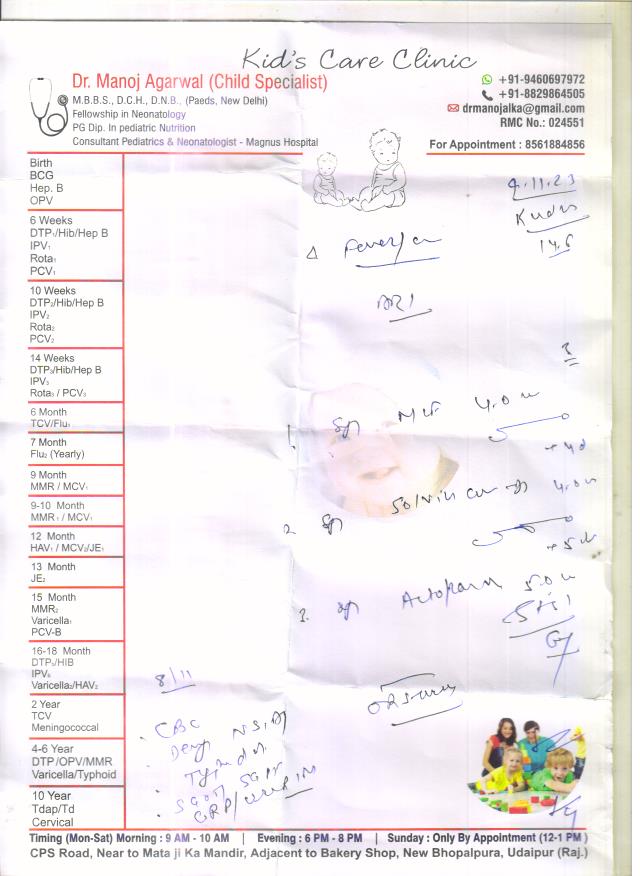 Kid's Care Clinic
Dr. Manoj Agarwal (Child Specialist)
M.B.B.S., D.C.H., D.N.B., (Paeds, New Delhi)
Fellowship in Neonatology
PG Dip. In pediatric Nutrition
Consultant Pediatrics & Neonatologist - Magnus Hospital
+91-9460697972
+91-8829864505
drmanojalka@gmail.com
RMC No.: 024551
For Appointment : 8561884856
Birth
BCG
Hep. B
OPV
6 Weeks
DTP₁/Hib/Hep B
IPV₁
Rota₁
PCV₁
10 Weeks
DTP₂/Hib/Hep B
IPV₂
Rota₂
PCV₂
14 Weeks
DTP₃/Hib/Hep B
IPV₃
Rota₃ / PCV₃
6 Month
TCV/Flu₁
7 Month
Flu₂ (Yearly)
9 Month
MMR / MCV₁
9-10 Month
MMR₁ / MCV₁
12 Month
HAV₁ / MCV₂/JE₁
13 Month
JE₂
15 Month
MMR₂
Varicella₁
PCV-B
16-18 Month
DTP₅/HIB
IPV₆
Varicella₂/HAV₂
2 Year
TCV
Meningococcal
4-6 Year
DTP/OPV/MMR
Varicella/Typhoid
10 Year
Tdap/Td
Cervical
11.23
14.6
Δ Fever
ARI
1. Syp 4.0
+ 4d
2. Syp Solvin 4.0
+ 5d
3. Syp 5.0
8/11
CBC
NS1
Typhidot
SGOT SGPT
CRP
Timing (Mon-Sat) Morning : 9 AM - 10 AM | Evening : 6 PM - 8 PM | Sunday : Only By Appointment (12-1 PM)
CPS Road, Near to Mata ji Ka Mandir, Adjacent to Bakery Shop, New Bhopalpura, Udaipur (Raj.)